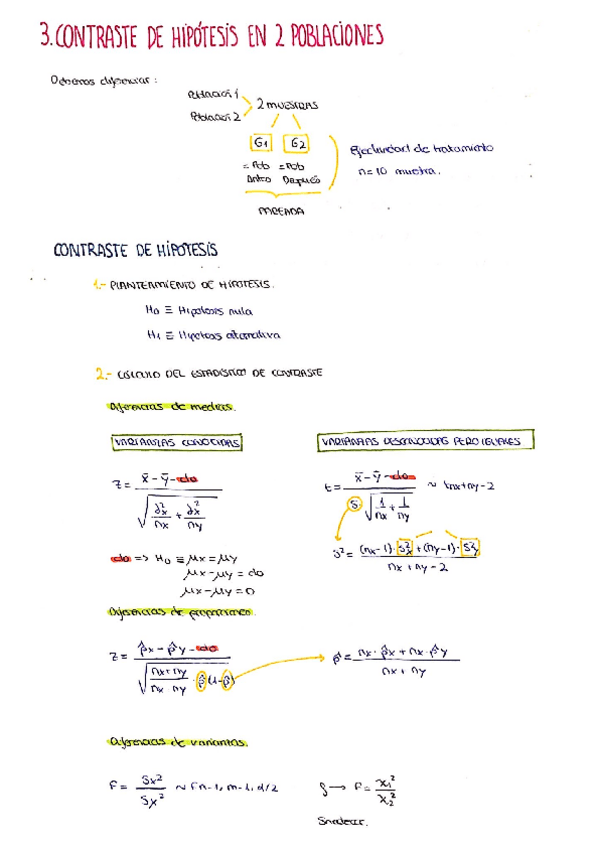 3. CONTRASTE DE HIPÓTESIS EN 2 POBLACIONES
Debemos diferenciar:
Población 1
Población 2
2 MUESTRAS
G1 G2
= Pob = Pob
Antes Después
n=10 muestra.
CONTRASTE DE HIPÓTESIS
1.- PLANTEAMIENTO DE HIPOTESIS.
H0 ≡ Hipotesis nula
H1 ≡ Hipotesis alternativa
2.- CÁLCULO DEL ESTADÍSTICO DE CONTRASTE
Diferencias de medias.
VARIANZAS CONOCIDAS
VARIANZAS DESCONOCIDAS PERO IGUALES
Z = (x̄ - ȳ - do) / √(∂²x/nx + ∂²y/ny)
t = (x̄ - ȳ - do) / (S √(1/nx + 1/ny)) ~ tnx+ny-2
do => H0 ≡ μx = μy
μx - μy = do
μx - μy = 0
S² = ((nx-1)·S²x + (ny-1)·S²y) / (nx + ny - 2)
Diferencias de proporciones.
Z = (p̂x - p̂y - do) / √((nx+ny)/(nx ny) · p̂(1-p̂))
p̂ = (nx · p̂x + nx · p̂y) / (nx + ny)
Diferencias de varianzas.
F = Sx² / Sy² ~ Fn-1, m-1, α/2
F = χ1² / χ2²
Snedecor.